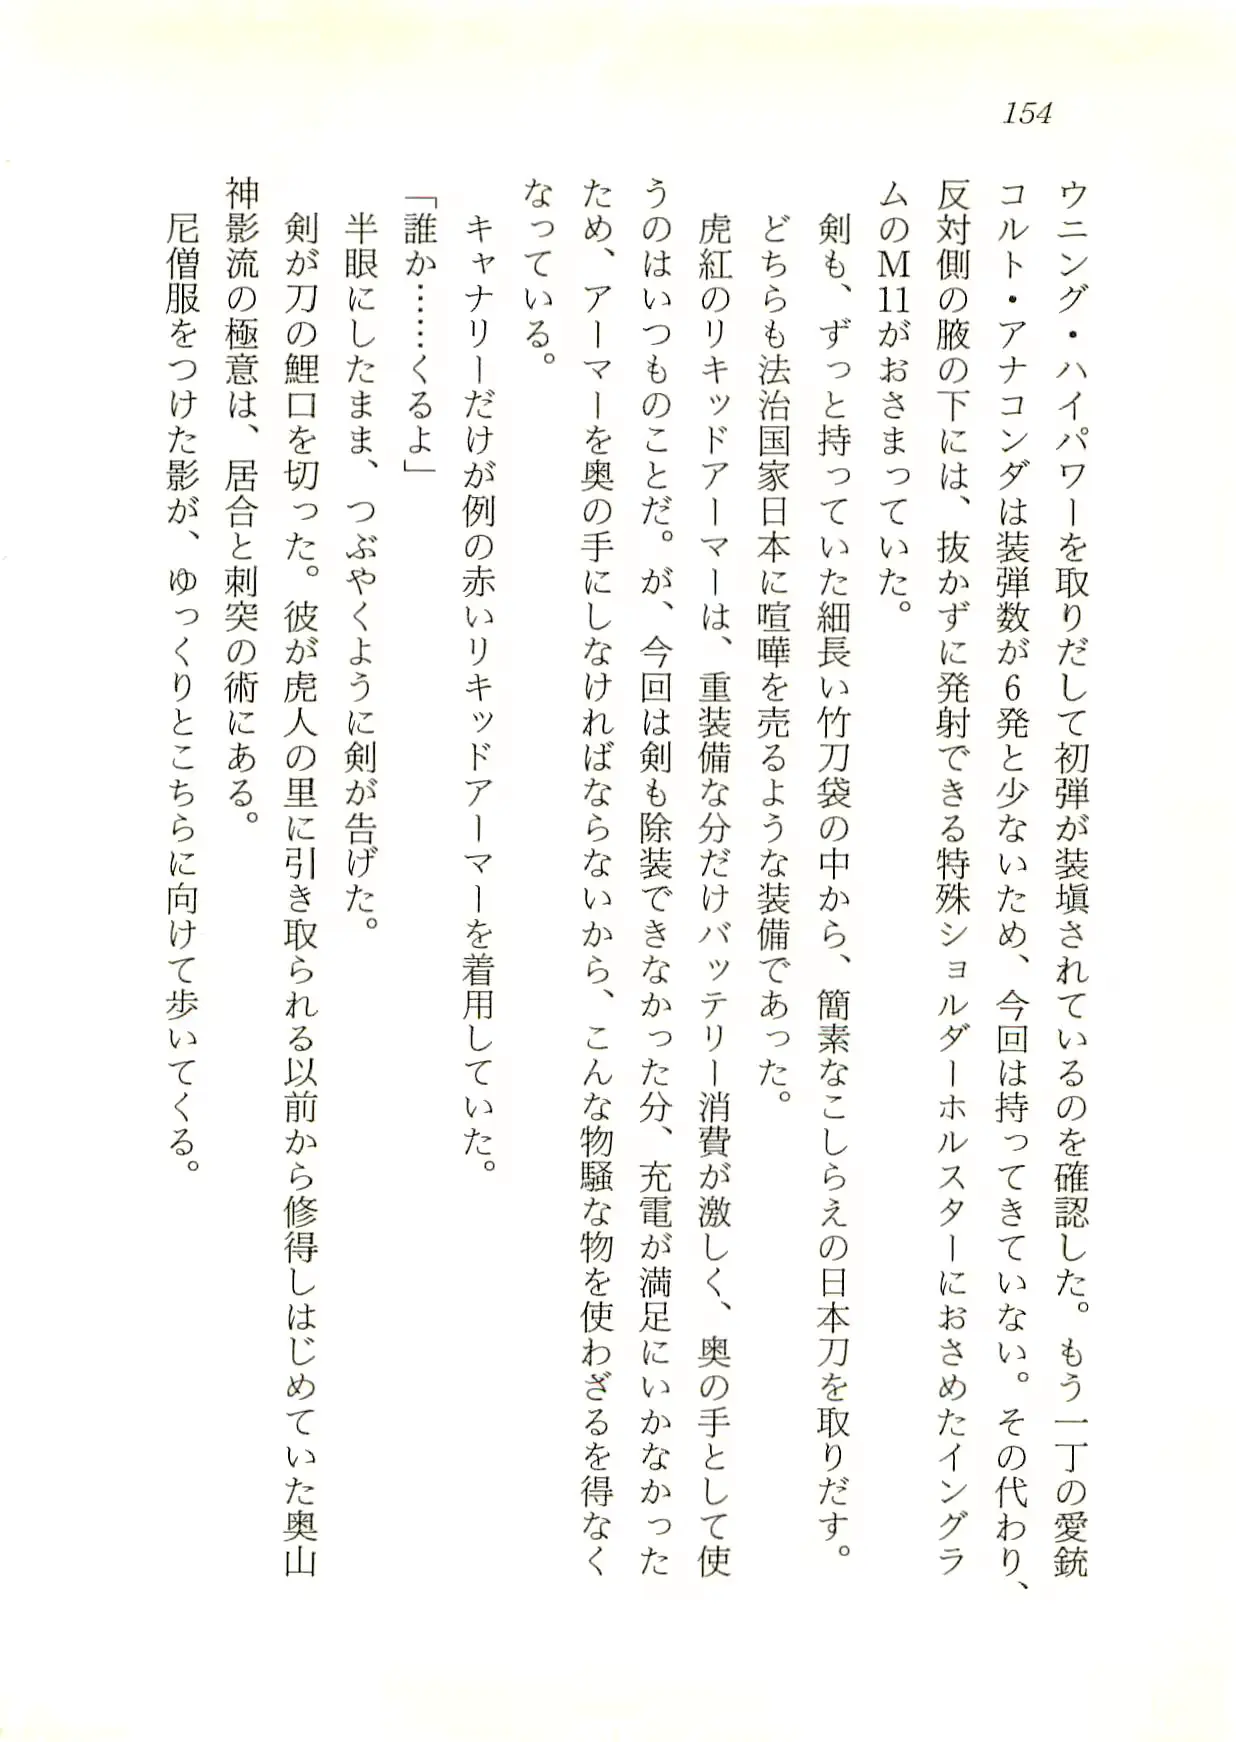 154
ウニング・ハイパワーを取りだして初弾が装塡されているのを確認した。もう一丁の愛銃
コルト・アナコンダは装弾数が6発と少ないため、今回は持ってきていない。その代わり、
反対側の腋の下には、抜かずに発射できる特殊ショルダーホルスターにおさめたイングラ
ムのM11がおさまっていた。
剣も、ずっと持っていた細長い竹刀袋の中から、簡素なこしらえの日本刀を取りだす。
どちらも法治国家日本に喧嘩を売るような装備であった。
虎紅のリキッドアーマーは、重装備な分だけバッテリー消費が激しく、奥の手として使
うのはいつものことだ。が、今回は剣も除装できなかった分、充電が満足にいかなかった
ため、アーマーを奥の手にしなければならないから、こんな物騒な物を使わざるを得なく
なっている。
キャナリーだけが例の赤いリキッドアーマーを着用していた。
「誰か……くるよ」
半眼にしたまま、つぶやくように剣が告げた。
剣が刀の鯉口を切った。彼が虎人の里に引き取られる以前から修得しはじめていた奥山
神影流の極意は、居合と刺突の術にある。
尼僧服をつけた影が、ゆっくりとこちらに向けて歩いてくる。